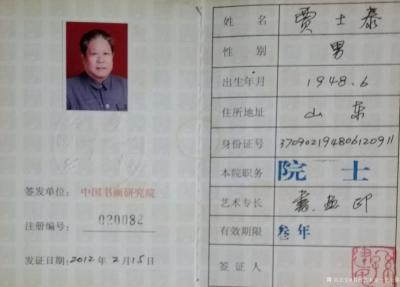 签发单位：中国书画研究院
注册编号：020084
发证日期：2012年2月15日
姓名 贾士泰
性别 男
出生年月 1948.6
住所地址 山东
身份证号
本院职务 院士
艺术专长 书画印
有效期限 叁年
签证人